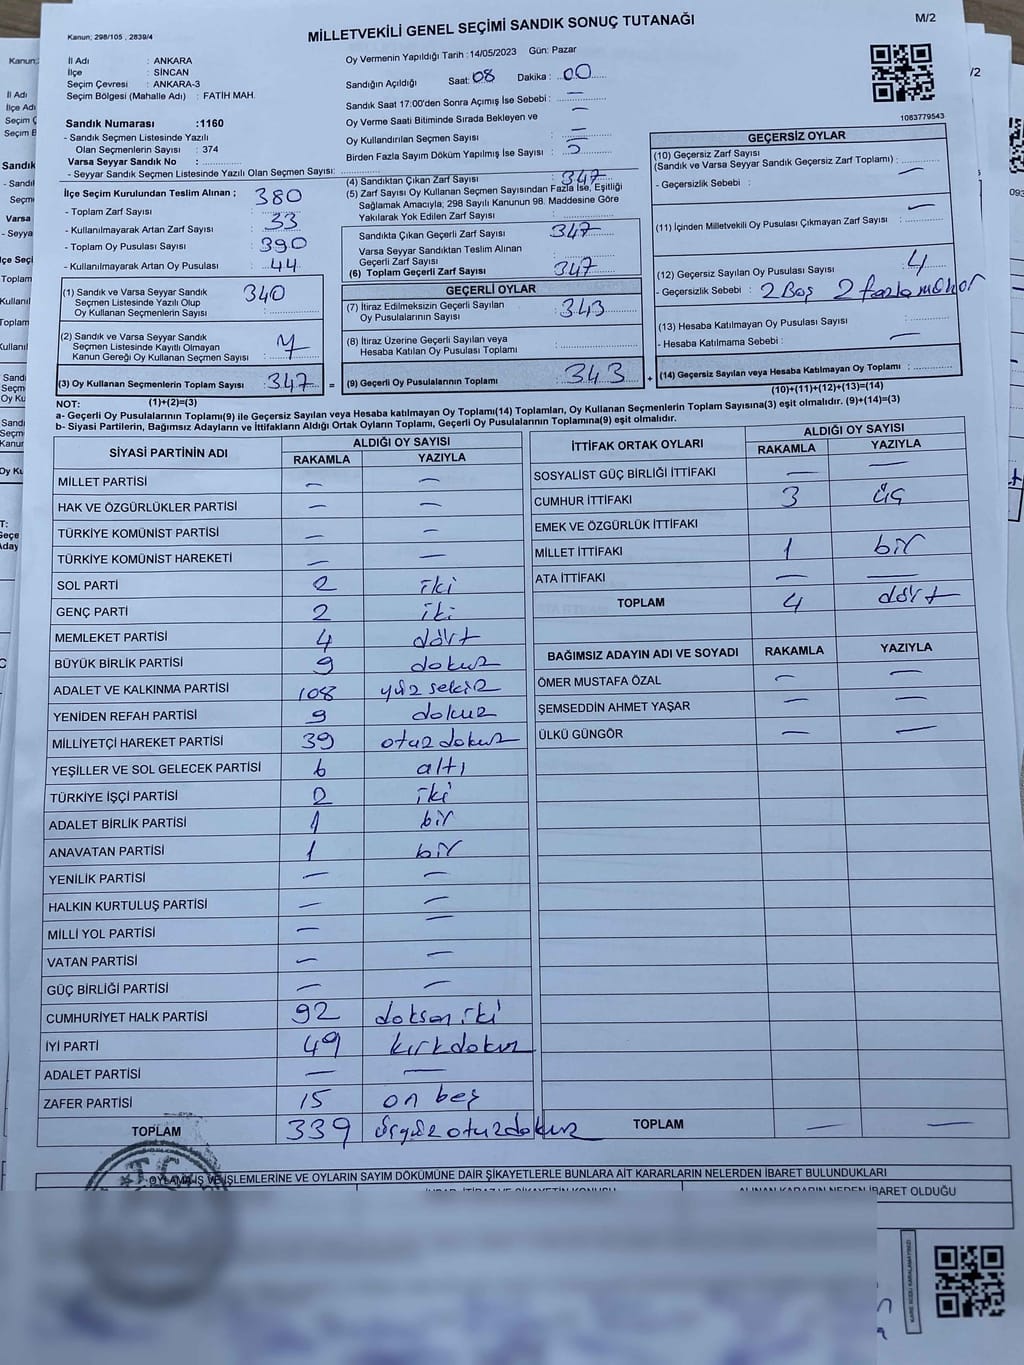 Kanun; 298/105 , 2839/4
MİLLETVEKİLİ GENEL SEÇİMİ SANDIK SONUÇ TUTANAĞI
M/2
İl Adı : ANKARA
İlçe : SİNCAN
Seçim Çevresi : ANKARA-3
Seçim Bölgesi (Mahalle Adı) : FATİH MAH.
Sandık Numarası :1160
- Sandık Seçmen Listesinde Yazılı
Olan Seçmenlerin Sayısı : 374
Varsa Seyyar Sandık No :
- Seyyar Sandık Seçmen Listesinde Yazılı Olan Seçmen Sayısı:
Oy Vermenin Yapıldığı Tarih : 14/05/2023 Gün: Pazar
Sandığın Açıldığı Saat: 08 Dakika : 00
Sandık Saat 17:00'den Sonra Açımış İse Sebebi : —
Oy Verme Saati Bitiminde Sırada Bekleyen ve —
Oy Kullandırılan Seçmen Sayısı : —
Birden Fazla Sayım Döküm Yapılmış İse Sayısı :
1083779543
İlçe Seçim Kurulundan Teslim Alınan ;
- Toplam Zarf Sayısı : 380
- Kullanılmayarak Artan Zarf Sayısı : 33
- Toplam Oy Pusulası Sayısı : 390
- Kullanılmayarak Artan Oy Pusulası : 44
(1) Sandık ve Varsa Seyyar Sandık 340
Seçmen Listesinde Yazılı Olup
Oy Kullanan Seçmenlerin Sayısı :
(2) Sandık ve Varsa Seyyar Sandık
Seçmen Listesinde Kayıtlı Olmayan
Kanun Gereği Oy Kullanan Seçmen Sayısı : 7
(3) Oy Kullanan Seçmenlerin Toplam Sayısı : 347 =
(1)+(2)=(3)
(4) Sandıktan Çıkan Zarf Sayısı : 347
(5) Zarf Sayısı Oy Kullanan Seçmen Sayısından Fazla İse, Eşitliği
Sağlamak Amacıyla; 298 Sayılı Kanunun 98. Maddesine Göre
Yakılarak Yok Edilen Zarf Sayısı :
Sandıkta Çıkan Geçerli Zarf Sayısı : 347
Varsa Seyyar Sandıktan Teslim Alınan
Geçerli Zarf Sayısı :
(6) Toplam Geçerli Zarf Sayısı : 347
GEÇERLİ OYLAR
(7) İtiraz Edilmeksizin Geçerli Sayılan
Oy Pusulalarının Sayısı : 343
(8) İtiraz Üzerine Geçerli Sayılan veya
Hesaba Katılan Oy Pusulası Toplamı :
(9) Geçerli Oy Pusulalarının Toplamı : 343 +
GEÇERSİZ OYLAR
(10) Geçersiz Zarf Sayısı
(Sandık ve Varsa Seyyar Sandık Geçersiz Zarf Toplamı) :
- Geçersizlik Sebebi : —
(11) İçinden Milletvekili Oy Pusulası Çıkmayan Zarf Sayısı : —
(12) Geçersiz Sayılan Oy Pusulası Sayısı : 4
- Geçersizlik Sebebi : 2 Boş 2 fazla mühür
(13) Hesaba Katılmayan Oy Pusulası Sayısı :
- Hesaba Katılmama Sebebi : —
(14) Geçersiz Sayılan veya Hesaba Katılmayan Oy Toplamı :
(10)+(11)+(12)+(13)=(14)
NOT:
a- Geçerli Oy Pusulalarının Toplamı(9) ile Geçersiz Sayılan veya Hesaba katılmayan Oy Toplamı(14) Toplamları, Oy Kullanan Seçmenlerin Toplam Sayısına(3) eşit olmalıdır. (9)+(14)=(3)
b- Siyasi Partilerin, Bağımsız Adayların ve İttifakların Aldığı Oyların Toplamı, Geçerli Oy Pusulalarının Toplamına(9) eşit olmalıdır.
SİYASİ PARTİNİN ADI
ALDIĞI OY SAYISI
RAKAMLA YAZIYLA
MİLLET PARTİSİ — —
HAK VE ÖZGÜRLÜKLER PARTİSİ — —
TÜRKİYE KOMÜNİST PARTİSİ — —
TÜRKİYE KOMÜNİST HAREKETİ — —
SOL PARTİ 2 iki
GENÇ PARTİ 2 iki
MEMLEKET PARTİSİ 4 dört
BÜYÜK BİRLİK PARTİSİ 9 dokuz
ADALET VE KALKINMA PARTİSİ 108 yüz sekiz
YENİDEN REFAH PARTİSİ 9 dokuz
MİLLİYETÇİ HAREKET PARTİSİ 39 otuz dokuz
YEŞİLLER VE SOL GELECEK PARTİSİ 6 altı
TÜRKİYE İŞÇİ PARTİSİ 2 iki
ADALET BİRLİK PARTİSİ 1 bir
ANAVATAN PARTİSİ 1 bir
YENİLİK PARTİSİ — —
HALKIN KURTULUŞ PARTİSİ — —
MİLLİ YOL PARTİSİ — —
VATAN PARTİSİ — —
GÜÇ BİRLİĞİ PARTİSİ — —
CUMHURİYET HALK PARTİSİ 92 doksan iki
İYİ PARTİ 49 kırkdokuz
ADALET PARTİSİ — —
ZAFER PARTİSİ 15 on beş
TOPLAM 339 üçyüz otuzdokuz
İTTİFAK ORTAK OYLARI
ALDIĞI OY SAYISI
RAKAMLA YAZIYLA
SOSYALİST GÜÇ BİRLİĞİ İTTİFAKI — —
CUMHUR İTTİFAKI 3 üç
EMEK VE ÖZGÜRLÜK İTTİFAKI
MİLLET İTTİFAKI 1 bir
ATA İTTİFAKI — —
TOPLAM 4 dört
BAĞIMSIZ ADAYIN ADI VE SOYADI RAKAMLA YAZIYLA
ÖMER MUSTAFA ÖZAL — —
ŞEMSEDDİN AHMET YAŞAR — —
ÜLKÜ GÜNGÖR — —
TOPLAM — —
OYLAMA İŞ VE İŞLEMLERİNE VE OYLARIN SAYIM DÖKÜMÜNE DAİR ŞİKAYETLERLE BUNLARA AİT KARARLARIN NELERDEN İBARET BULUNDUKLARI
ALINAN KARARIN NEDEN İBARET OLDUĞU